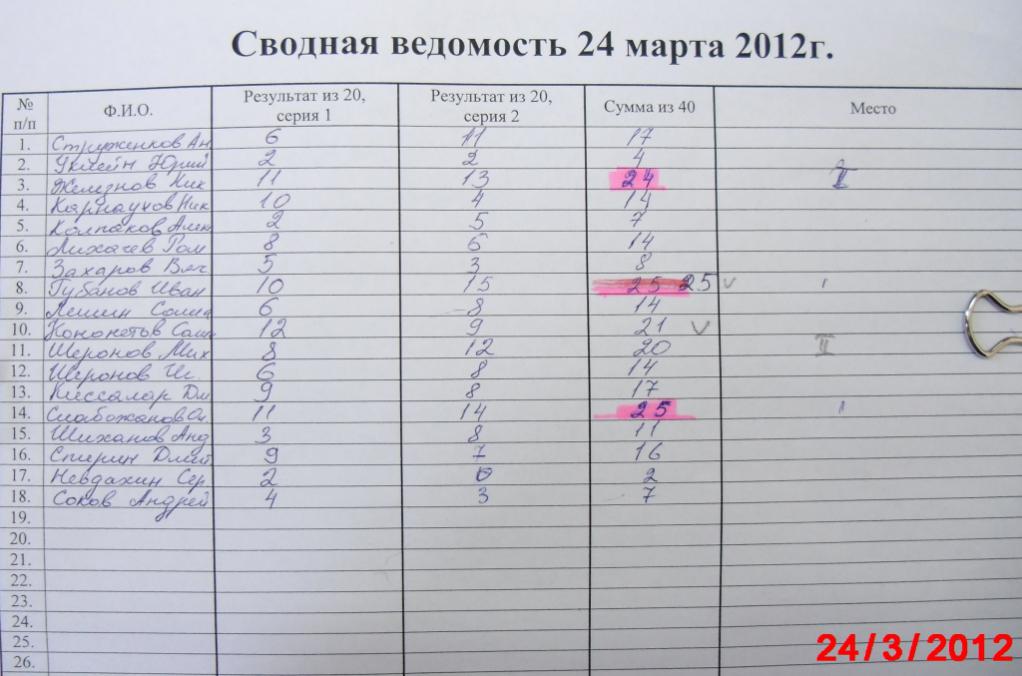 Сводная ведомость 24 марта 2012г.
№ п/п Ф.И.О. Результат из 20, серия 1 Результат из 20, серия 2 Сумма из 40 Место
1. Струженков Ан 6 11 17
2. Юрий 2 2 4
3. Железнов Ник 11 13 24 II
4. Карпаухов Ник 10 4 14
5. Колпаков Алек 2 5 7
6. Лихачев Ром 8 6 14
7. Захаров Вяч 5 3 8
8. Губанов Иван 10 15 25 25 V I
9. Лешин 6 8 14
10. 12 9 21 V
11. Шеронов Мих 8 12 20 III
12. Шеронов 6 8 14
13. Киссалар Дм 9 8 17
14. Слабожанов 11 14 25 I
15. Шиханов Анд 3 8 11
16. Стерин Дмит 9 7 16
17. Невдахин Сер 2 0 2
18. Соков Андрей 4 3 7
19.
20.
21.
22.
23.
24.
25.
26.
24/3/2012